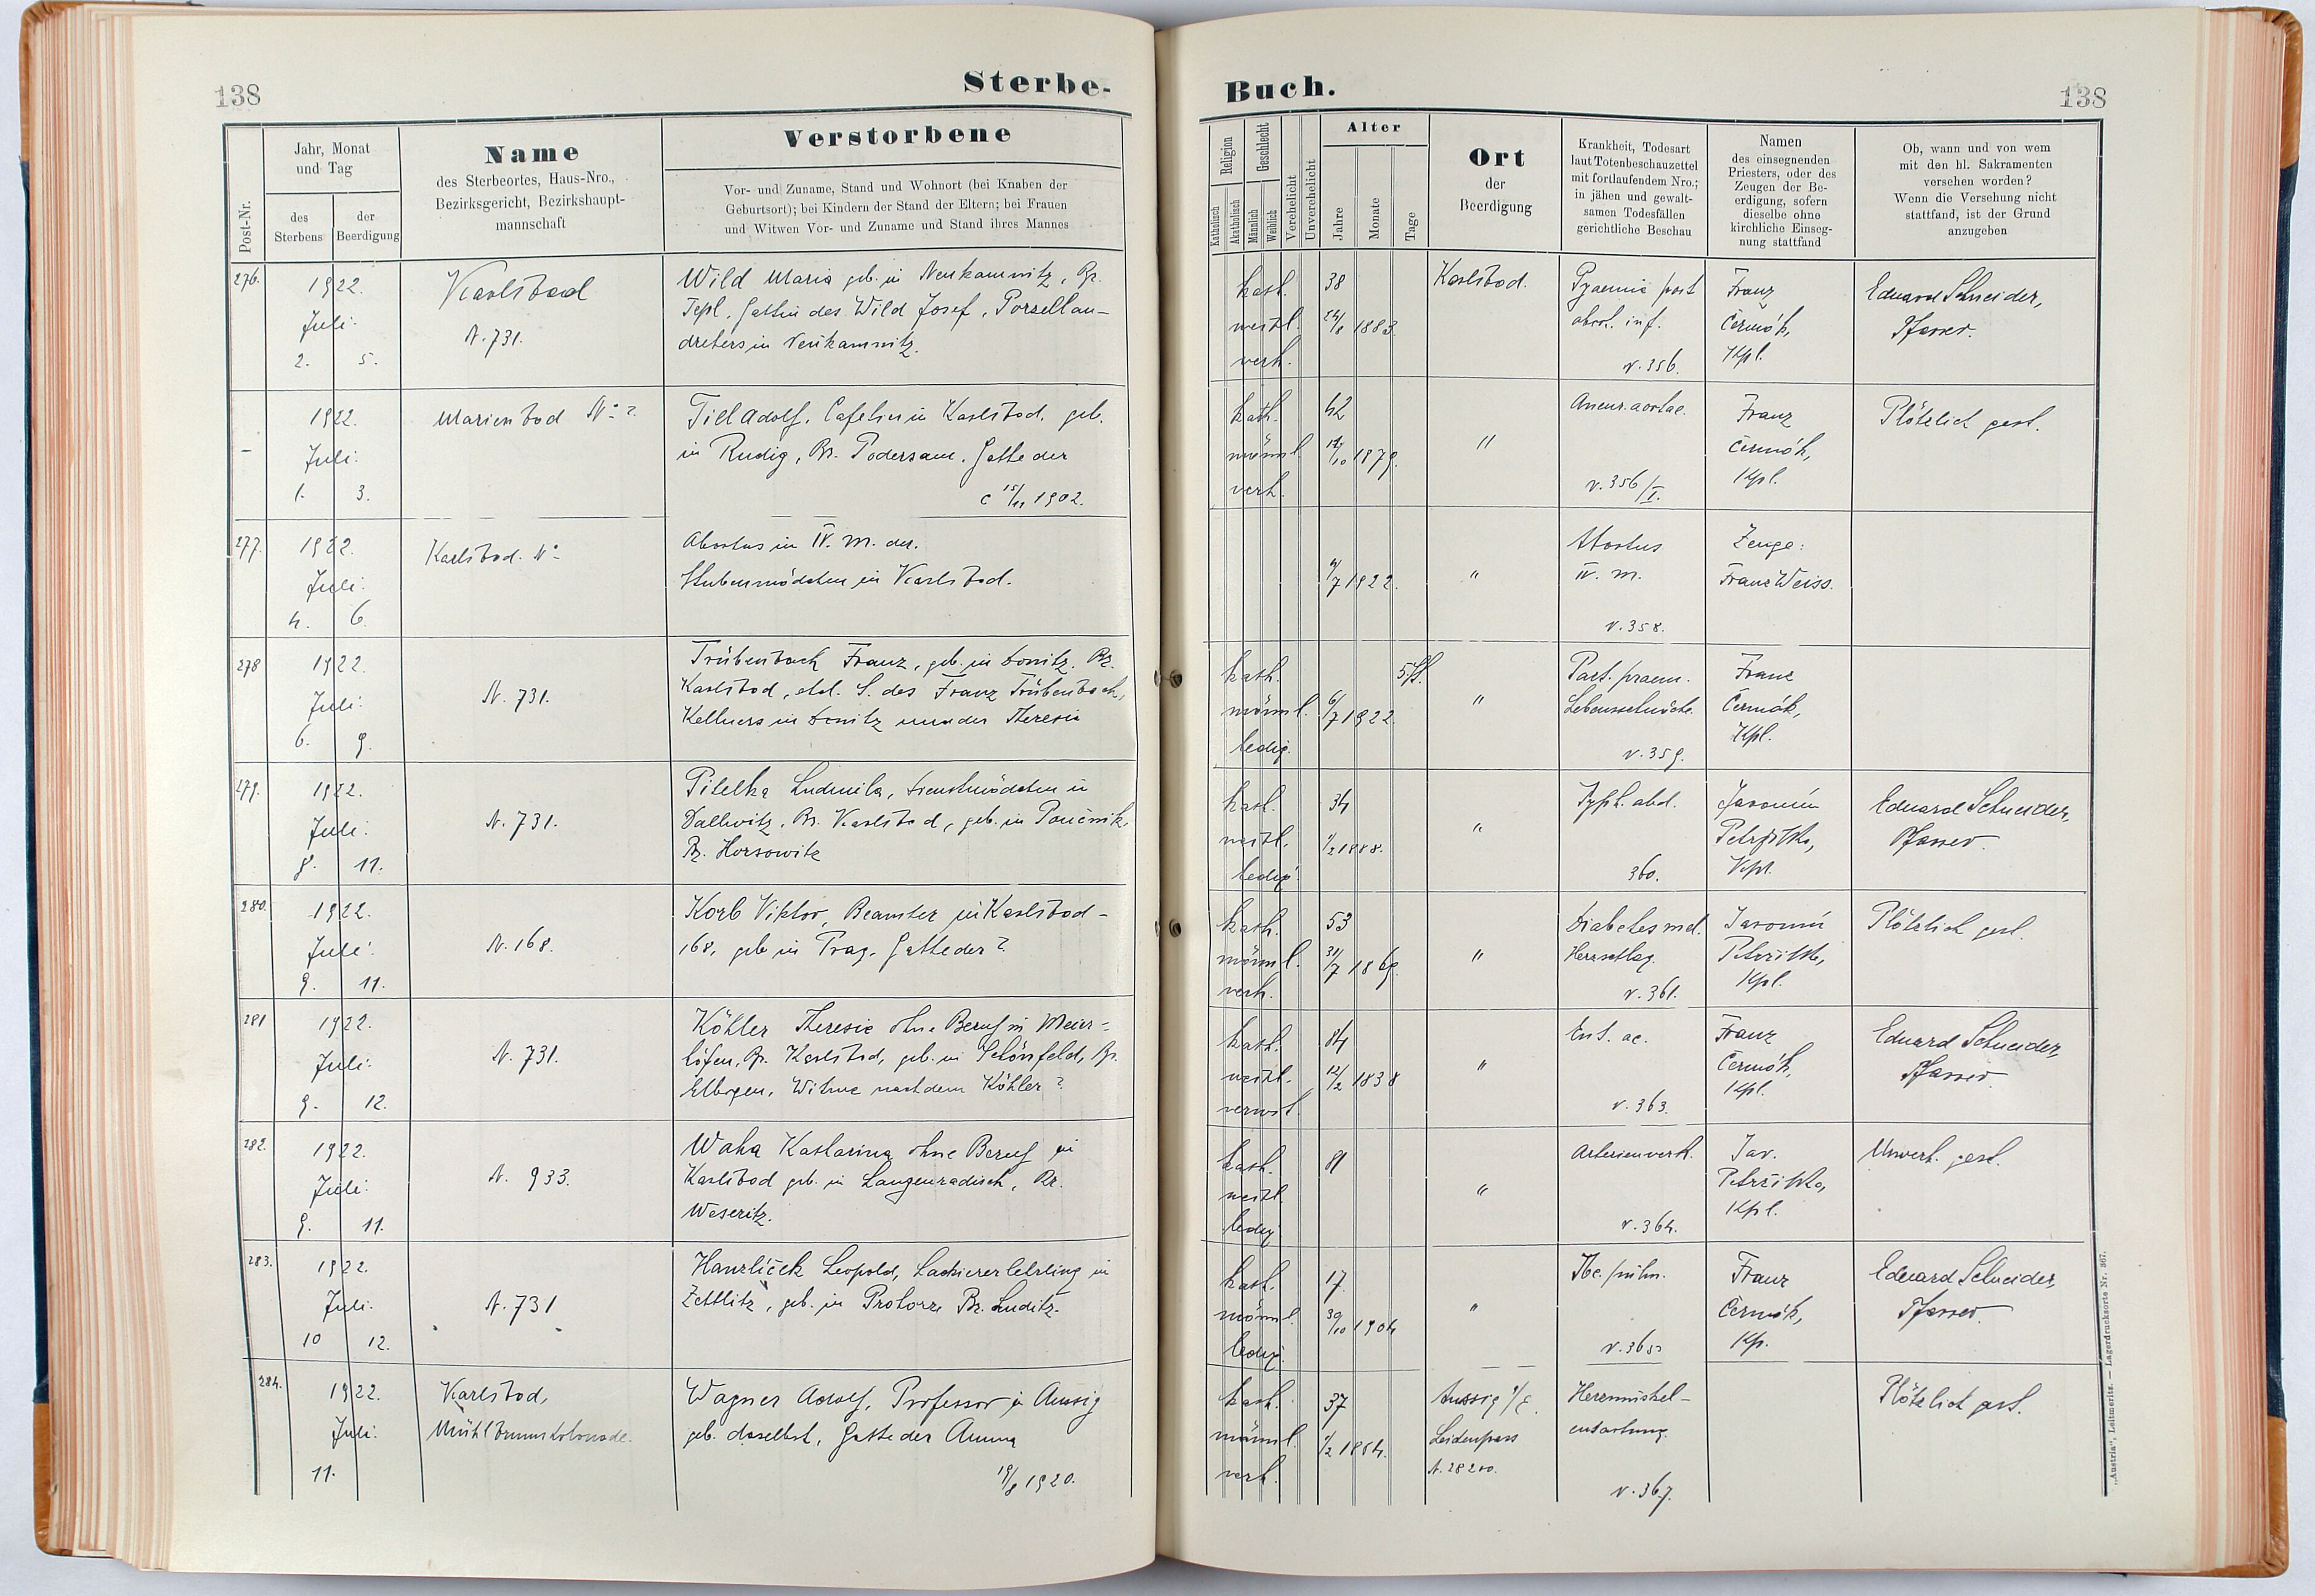 138
Sterbe-
Post-Nr.
Jahr, Monat
und Tag
des
Sterbens
der
Beerdigung
Name
des Sterbeortes, Haus-Nro.,
Bezirksgericht, Bezirkshaupt-
mannschaft
Verstorbene
Vor- und Zuname, Stand und Wohnort (bei Knaben der
Geburtsort); bei Kindern der Stand der Eltern; bei Frauen
und Witwen Vor- und Zuname und Stand ihres Mannes
276.
1922.
Juli.
2. 5.
Karlsbad
N. 731.
Wild Maria geb. in Neukaunitz, Bz.
Tepl, Gattin des Wild Josef, Porzellan-
drehers in Neukaunitz.
-
1922.
Juli.
1. 3.
Marienbad No ?
Till Adolf, Cafetier in Karlsbad, geb.
in Rudig, Bz. Podersam, Gatte der
c 15/11 1902.
277.
1922.
Juli.
4. 6.
Karlsbad. No
Abortus im IV. M. der
Stubenmädchen in Karlsbad.
278
1922.
Juli.
6. 9.
N. 731.
Trübenbach Franz, geb. in Donitz, Bz.
Karlsbad, ehel. S. des Franz Trübenbach,
Kellners in Donitz und der Theresia
279.
1922.
Juli.
8. 11.
N. 731.
Ludmila, Dienstmädchen in
Dallwitz, Bz. Karlsbad, geb. in
Bz. Horsowitz
280.
1922.
Juli.
9. 11.
N. 168.
Korb Viktor, Beamter in Karlsbad-
168, geb in Prag, Gatte der ?
281
1922.
Juli.
9. 12.
N. 731.
Köhler Theresie ohne Beruf in Meier-
höfen, Bz. Karlsbad, geb. in Schönfeld, Bz.
Elbogen, Witwe nach dem Köhler ?
282.
1922.
Juli.
9. 11.
N. 933.
Waha Katharina ohne Beruf in
Karlsbad geb. in Langenradisch, Bz.
Weseritz.
283.
1922.
Juli.
10 12.
N. 731
Hanzlíček Leopold, Lackiererlehrling in
Zettlitz, geb. in Bz. Luditz.
284.
1922.
Juli.
11.
Karlsbad,
Mühlbrunnkolonade.
Wagner Adolf, Professor in Aussig
geb. daselbst, Gatte der Anna
19/8 1920.
Buch.
138
Religion
Katholisch
Akatholisch
Geschlecht
Männlich
Weiblich
Verehelicht
Unverehelicht
Alter
Jahre
Monate
Tage
Ort
der
Beerdigung
Krankheit, Todesart
laut Totenbeschauzettel
mit fortlaufendem Nro.;
in jähen und gewalt-
samen Todesfällen
gerichtliche Beschau
Namen
des einsegnenden
Priesters, oder des
Zeugen der Be-
erdigung, sofern
dieselbe ohne
kirchliche Einseg-
nung stattfand
Ob, wann und von wem
mit den hl. Sakramenten
versehen worden?
Wenn die Versehung nicht
stattfand, ist der Grund
anzugeben
kath.
weibl.
verh.
38
1883.
Karlsbad.
Pyaemia post
abort. inf.
N. 356.
Franz
Čermák,
Kpl.
Eduard Schneider,
Pfarrer.
kath.
männl.
verh.
42
/10 1879.
"
Aneur. aortae.
N. 356/I.
Franz
Čermák,
Kpl.
Plötzlich gest.
4/7 1922.
"
Abortus
IV. M.
N. 358.
Zeuge:
Franz Weiss.
kath.
männl.
ledig.
5 St.
6/7 1922.
"
Part. praem.
Lebensschwäche.
N. 359.
Franz
Čermák,
Kpl.
kath.
weibl.
ledig.
34
1/2 1888.
"
Typh. abd.
360.
Jaromír
Petržilka,
Kpl.
Eduard Schneider,
Pfarrer.
kath.
männl.
verh.
53
31/7 1869.
"
Diabetes mel.
Herzschlag.
N. 361.
Jaromír
Petržilka,
Kpl.
Plötzlich gest.
kath.
weibl.
verwit.
84
12/2 1838
"
Ent. ac.
N. 363.
Franz
Čermák,
Kpl.
Eduard Schneider,
Pfarrer.
kath.
weibl.
ledig
81
"
Arterienverk.
N. 364.
Jar.
Petržilka,
Kpl.
Unverh. gest.
kath.
männl.
ledig.
17.
30/10 1904
"
Tbc. pulm.
N. 365.
Franz
Čermák,
Kp.
Eduard Schneider,
Pfarrer.
kath.
männl.
verh.
37
1/2 1884.
Aussig a/E.
Leichenpass
N. 28200.
Herzmuskel-
entartung.
N. 367.
Plötzlich gest.
„Austria“, Leitmeritz. — Lagerdrucksorte Nr. 367.